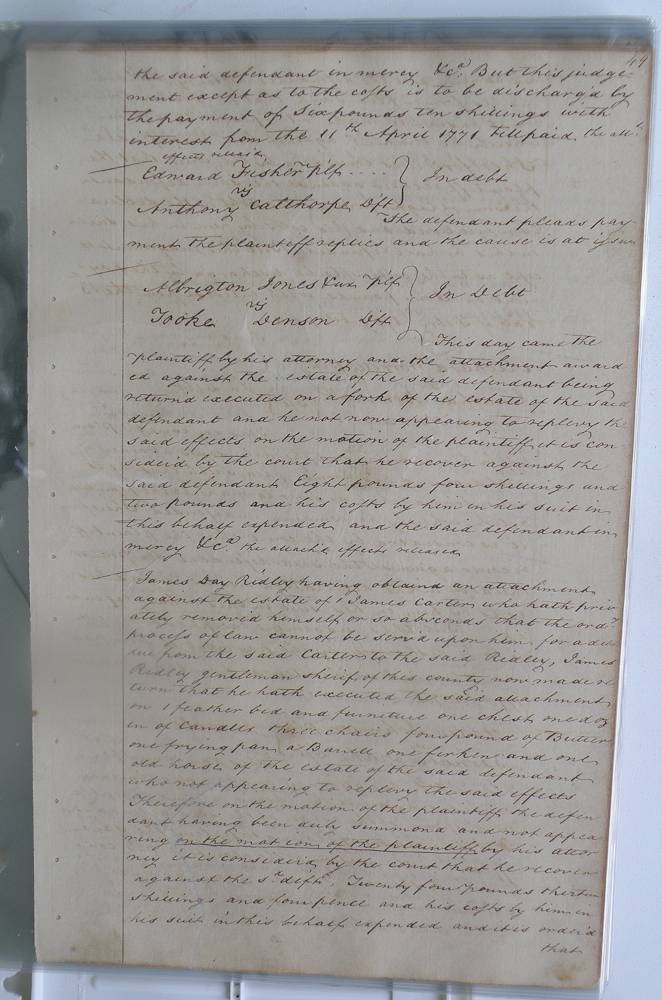 49
the said defendant in mercy &ca. But this judge-
ment except as to the costs is to be discharg'd by
the payment of Six pounds ten shillings with
interest from the 11th April 1771 till paid the att.
effects releas'd
Edward Fisher plf....
vs
In debt
Anthony Calthorpe Dft
The defendant pleads pay-
ment the plaintiff replies and the cause is at issue
Albrigton Jones & ux plf
vs
In Debt
Tooke Denson Dft
This day came the
plaintiff by his attorney and the attachment award
ed against the estate of the said defendant being
return'd executed on a fork of the estate of the said
defendant and he not now appearing to replevy the
said effects on the motion of the plaintiff it is con-
sider'd by the court that he recover against the
said defendant Eight pounds four shillings and
two pounds and his costs by him in his suit in
this behalf expended and the said defendant in
mercy &ca. the attach'd effects released
James Day Ridley having obtaind an attachment
against the estate of James Carter who hath priv
ately removed himself or so absconds that the ordy
process of law cannot be serv'd upon him for a debt
due from the said Carter to the said Ridley, James
Ridley gentleman sherif of this county now made re
turn that he hath executed the said attachment
on 1 feather bed and furniture one chest one doz
en of Candles three chairs four pound of Butter
one frying pan a Barrell one firken and one
old horse of the estate of the said defendant
who not appearing to replevy the said effects
Therefore on the motion of the plaintiff the defen
dant having been duly summond and not appea
ring on the motion of the plaintiff by his attor
ney it is consider'd by the court that he recover
against the sd. deft. Twenty four pounds thirteen
shillings and four pence and his costs by him in
his suit in this behalf expended and it is order'd
that